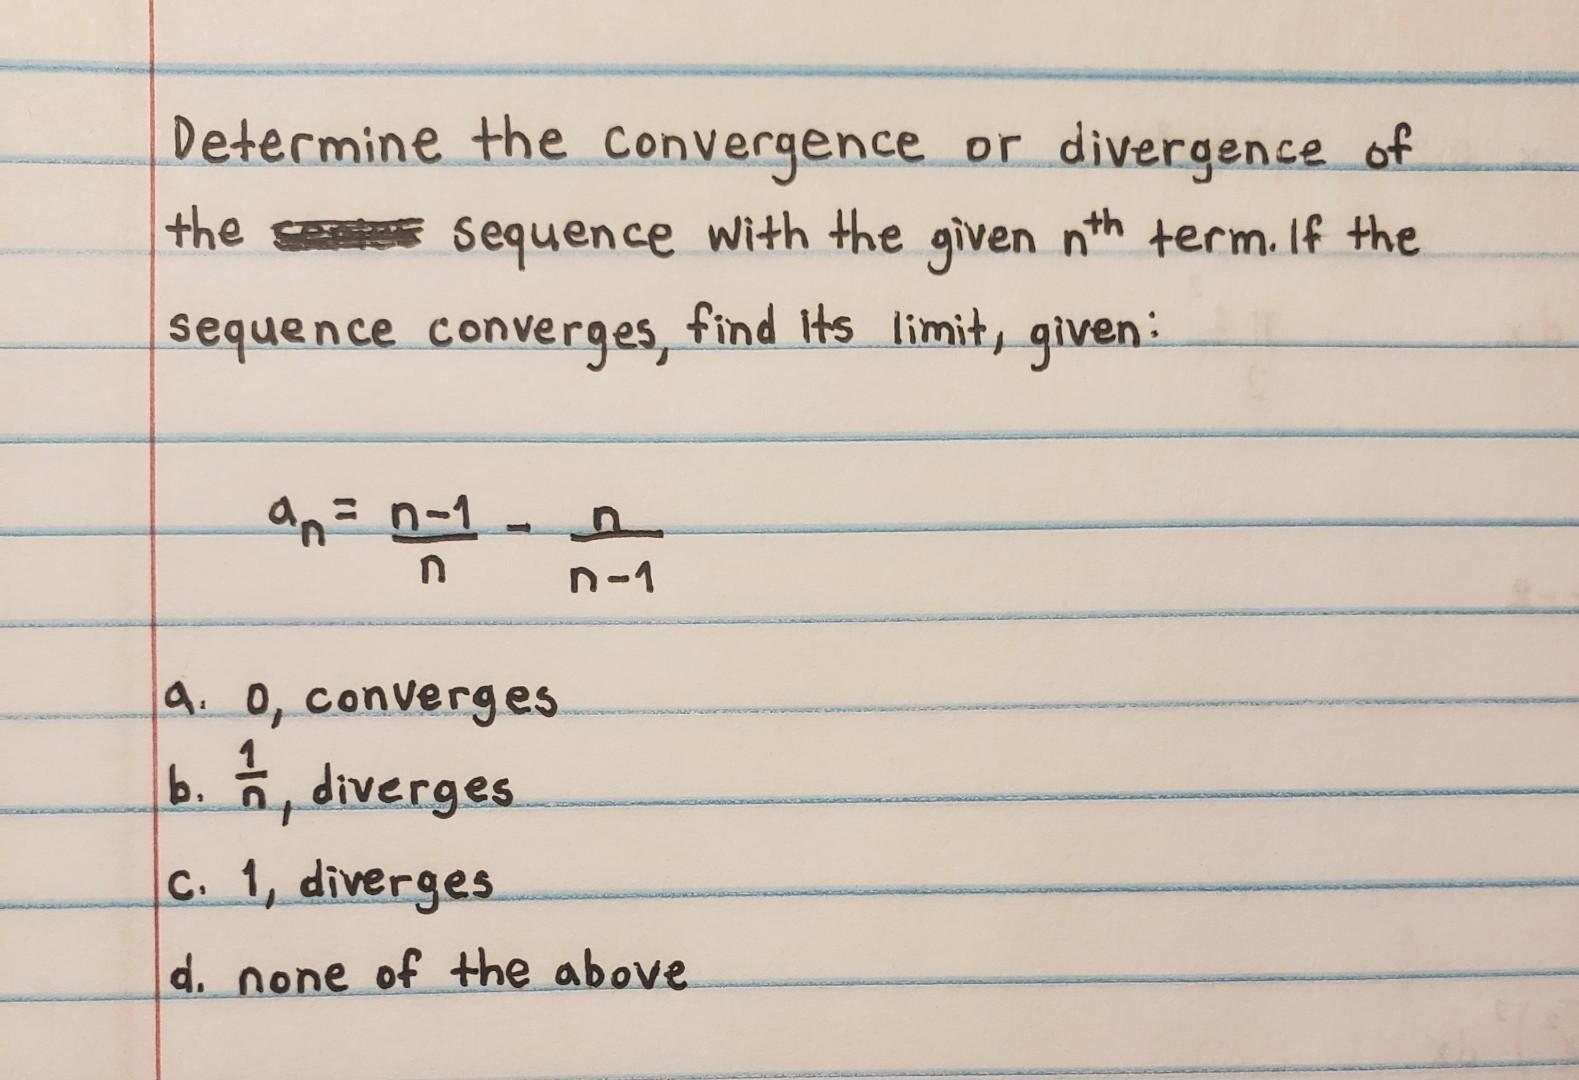 Determine the convergence or divergence of
the sequence with the given nth term. If the
sequence converges, find its limit, given:
an = n-1/n - n/n-1
a. 0, converges
b. 1/n, diverges
c. 1, diverges
d. none of the above